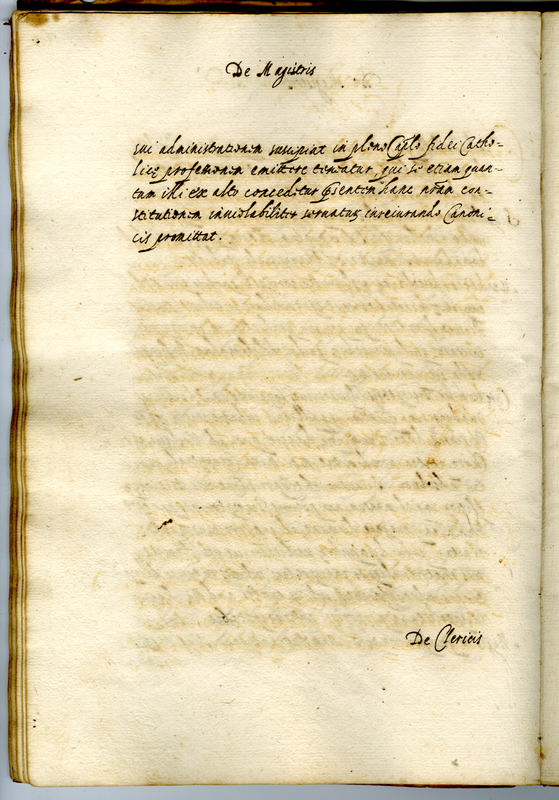 De Magistris
sui administrationem suscipiat in pleno Caplo fidei Catho-
licę professionem emittere teneatur, qui se etiam quan-
tum illi ex alto conceditur pñtem hanc nram con-
stitutionem inviolabiliter servaturum iureiurando Canoni-
cis promittat.
De Clericis